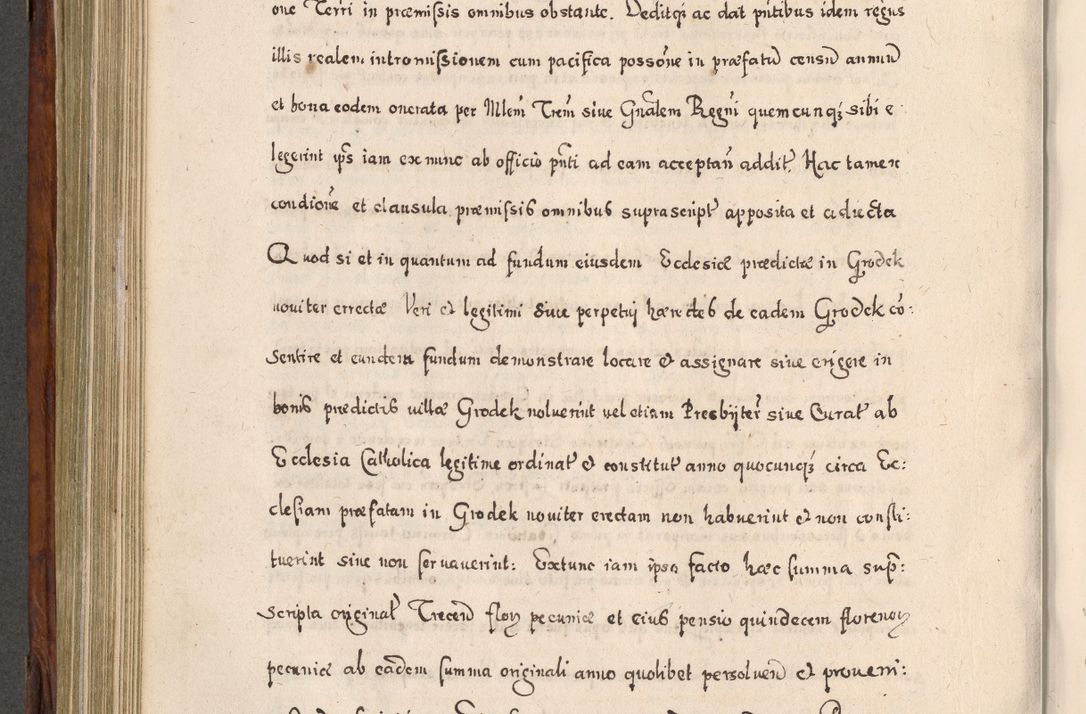 one Terri in præmissis omnibus obstante. Deditq; ac dat pñtibus idem regus
illis realem intromissionem cum pacifica possõne in præfatũ censũ annuũ
et bona eodem onerata per Mlem̃ Trem̃ siue Gñalem Regñi quemcunq; sibi e
legerint ip̃s iam ex nunc ab officio pñti ad eam acceptañ addit̃. Hac tamen
condiõne et clausula præmissis omnibus suprascript̃ apposita et adiecta
Quod si et in quantum ad fundum eiusdem Ecclesiæ prædictæ in Grodek
nouiter errectæ Veri et legitimi siue perpetuj hæredes de eadem Grodek cõ:
sentire et eundem fundum demonstrare locare et assignare siue erigere in
bonis prædictis villæ Grodek noluerint vel etiam Presbijter̃ siue Curat̃ ab
Ecclesia Catholica legitime ordinat̃ et constitut̃ anno quocunq; circa Ec:
clesiam præfatam in Grodek nouiter erectam non habuerint et non consti:
tuerint siue non seruauerint: Extunc iam ipso facto hæc summa sup̃:
scripta original̃ Trecen̄ flor̃ pecuniæ et eius pensio quindecem florenor̃
pecuniæ ab eadem summa originali anno quolibet persoluen̄ et proueni: